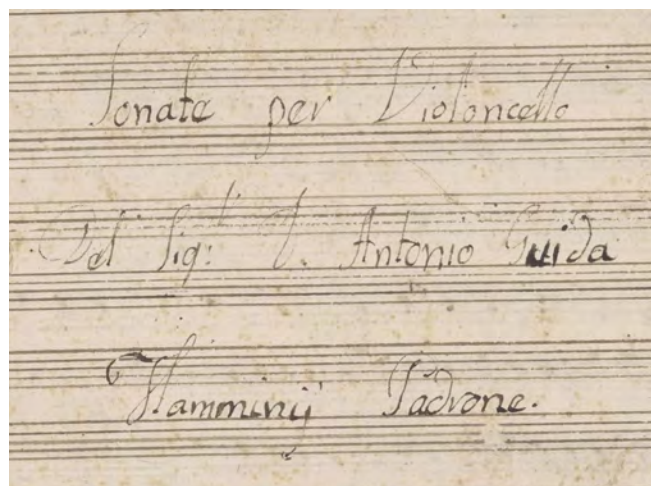 Sonate per Violoncello
Del Sig:r D. Antonio Guida
Flamminij Padrone.